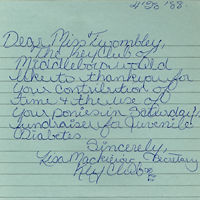 4/28 '88.
Dear Miss Twombley,
The Key Club of
Middleboro would
like to thank you for
your contribution of
time & the use of
your ponies in Saturday's
fundraiser for Juvenile
Diabetes.
Sincerely,
Lisa Secretary
Key Club